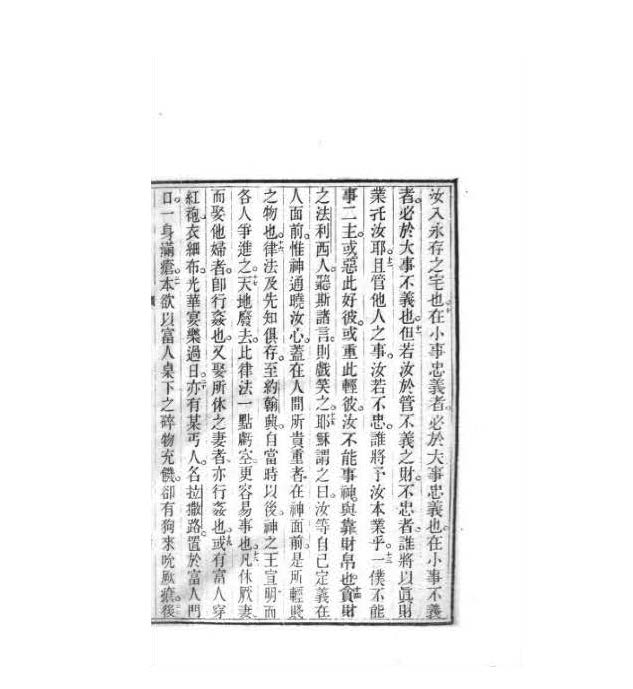 汝入永存之宅也。十在小事忠義者。必於大事忠義也。在小事不義
者。必於大事不義也。十一但若汝於管不義之財。不忠者。誰將以眞財
業托汝耶。十二且管他人之事。汝若不忠。誰將予汝本業乎。十三一僕不能
事二主。或惡此好彼。或重此輕彼。汝不能事神。與靠財帛也。十四貪財
之法利西人。聽斯諸言。則戲笑之。十五耶穌謂之曰。汝等自己定義在
人面前。惟神通曉汝心。蓋在人間所貴重者。在神面前。是所輕賤
之物也。十六律法及先知俱存。至約翰與。自當時以後。神之王宣明。而
各人爭進之。十七天地廢去。比律法一點虧空。更容易事也。十八凡休厥妻
而娶他婦者。卽行姦也。又娶所休之妻者。亦行姦也。十九或有富人穿
紅袍衣細布。光華宴樂過日。二十亦有某丐人。名拉撒路。置於富人門
口。一身滿瘡。二一本欲以富人桌下之碎物充饑。卻有狗來吮厥瘡。後